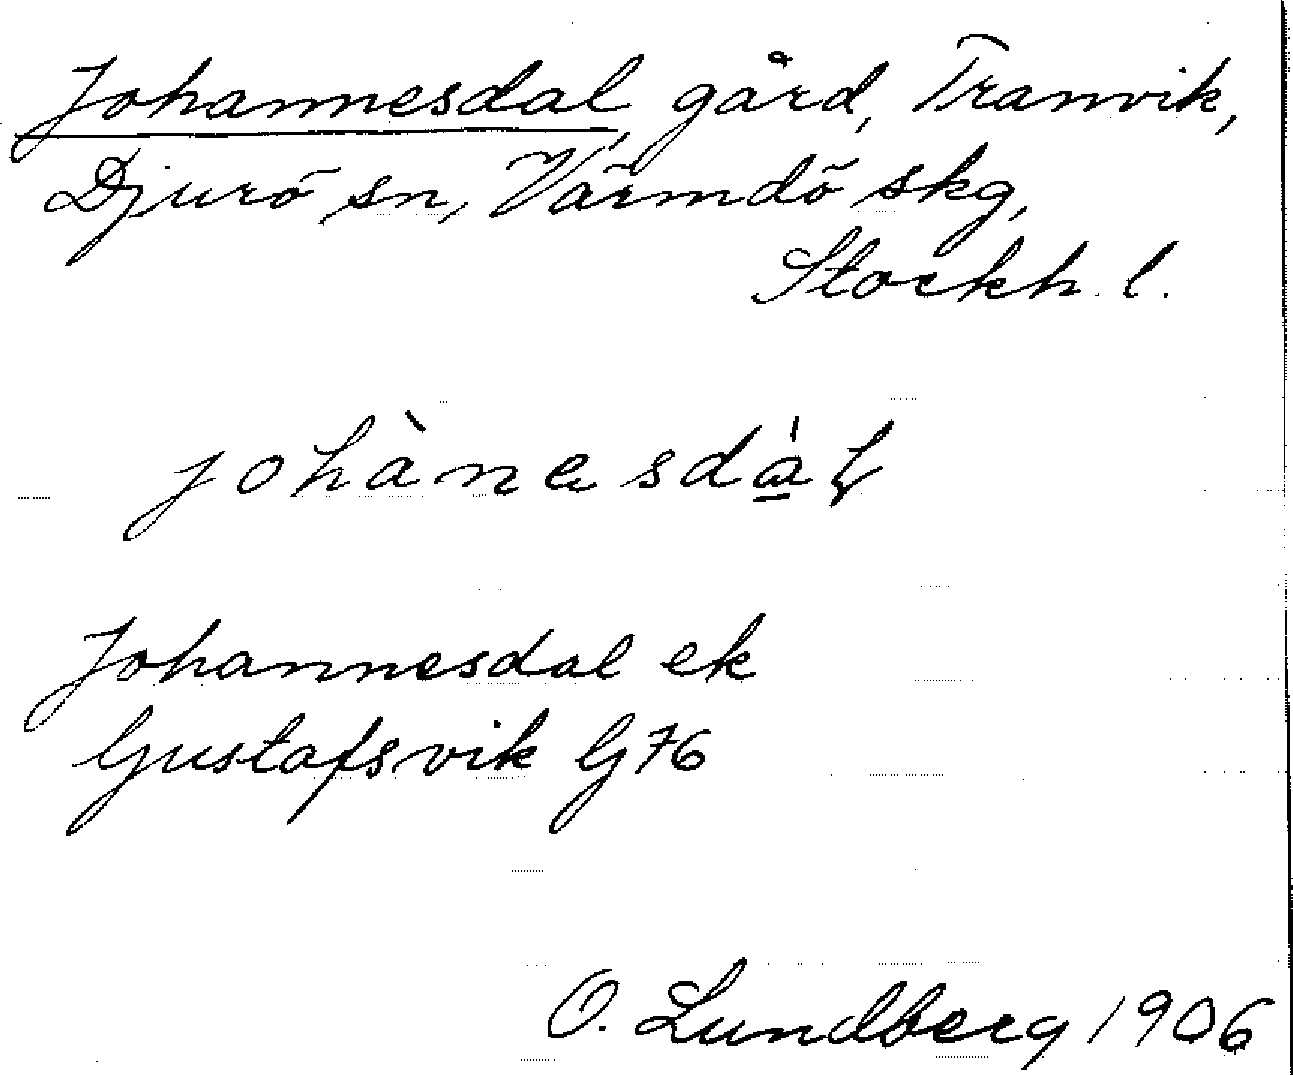 Johannesdal, gård, Tranvik,
Djurö sn, Värmdö skg,
Stockh. l.
johànesdá̱ł
Johannesdal ek
Gustafsvik G76
O. Lundberg 1906